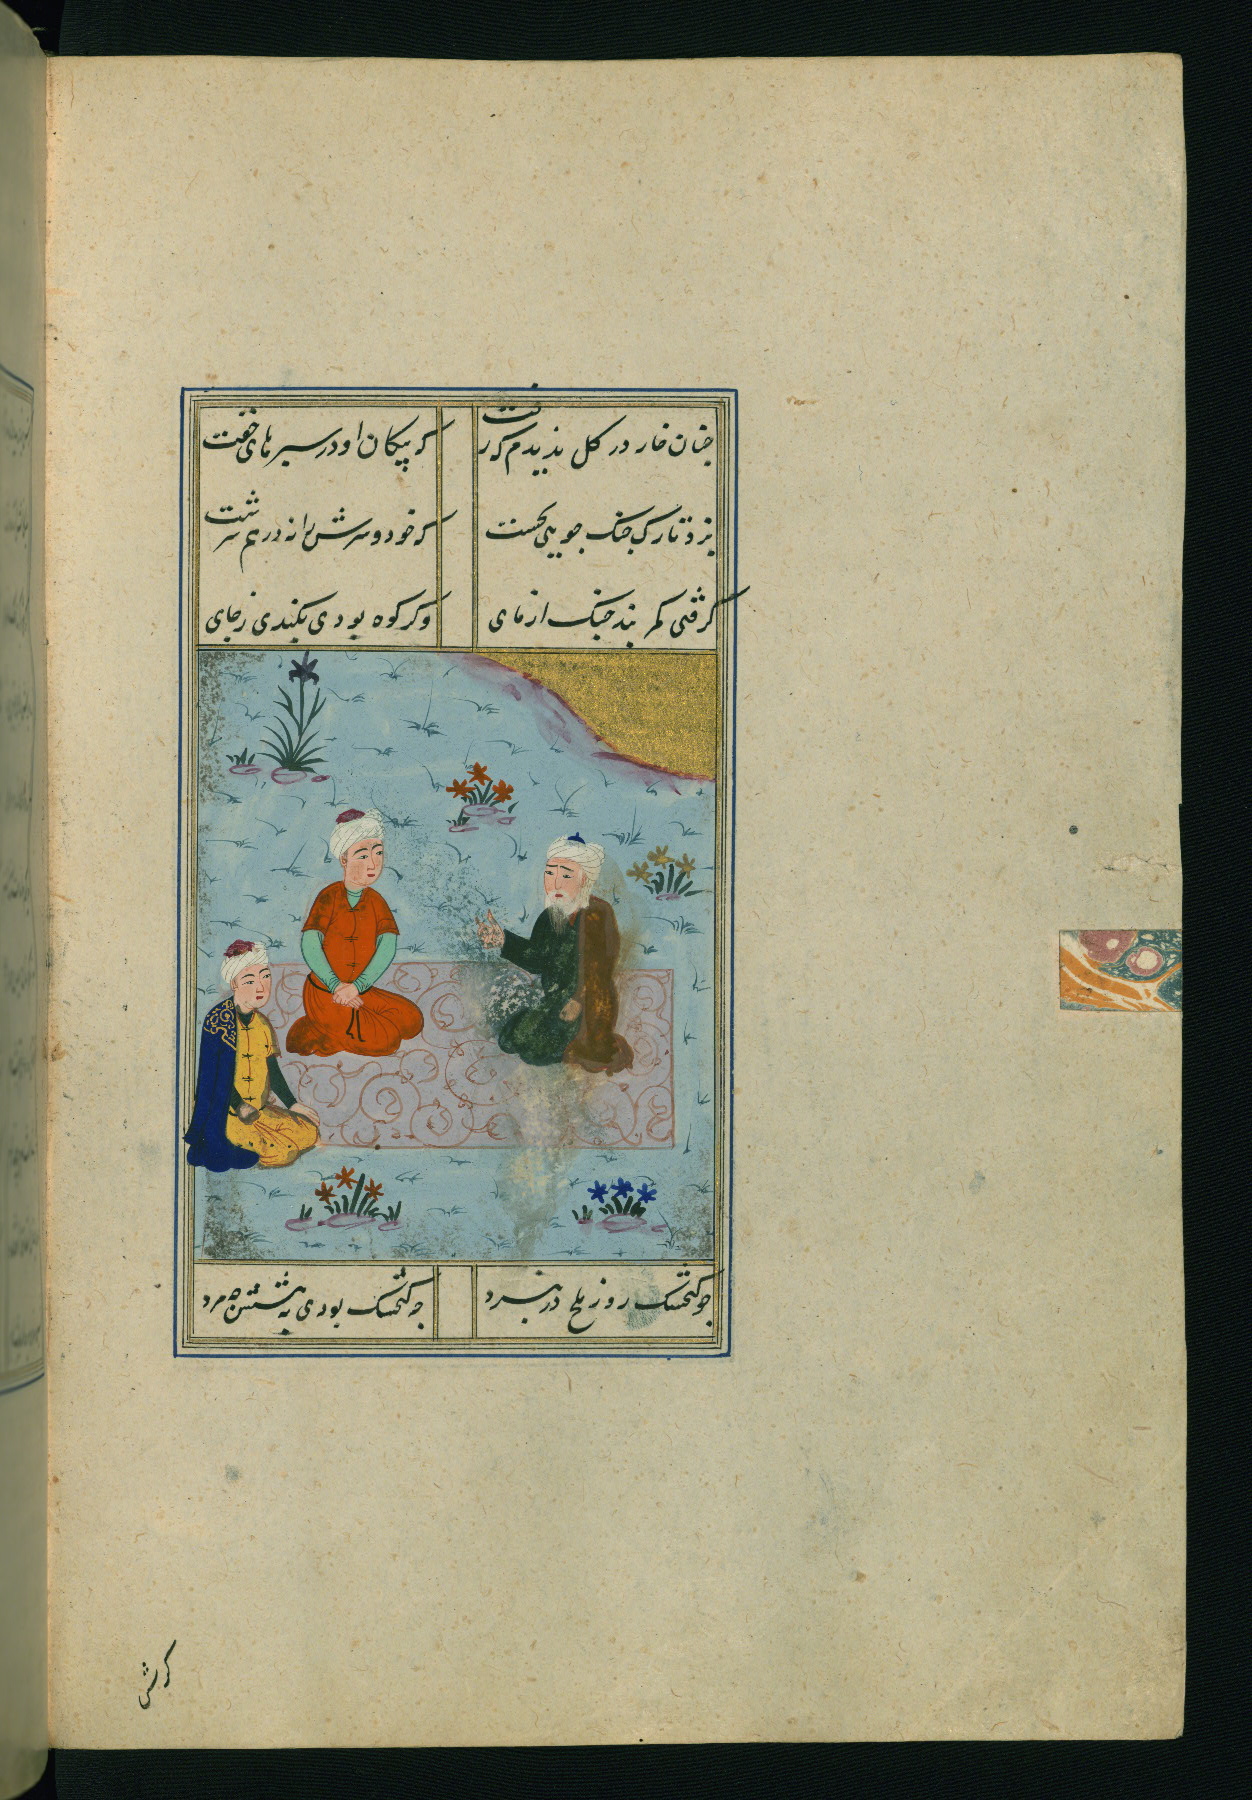 چنان خار در کل ندیدم که رفت
که پیکان او در سپرهای جفت
نزد تارک جنک جویی بخست
که خود و سرش را نه درهم سرشت
کرفتی کمر بند جنک ازمای
وکر کوه بودی بکندی زجای
چو کنجشک روز ملخ در نبرد
چه کنجشک بودی به پیشش چه مرد
کرش